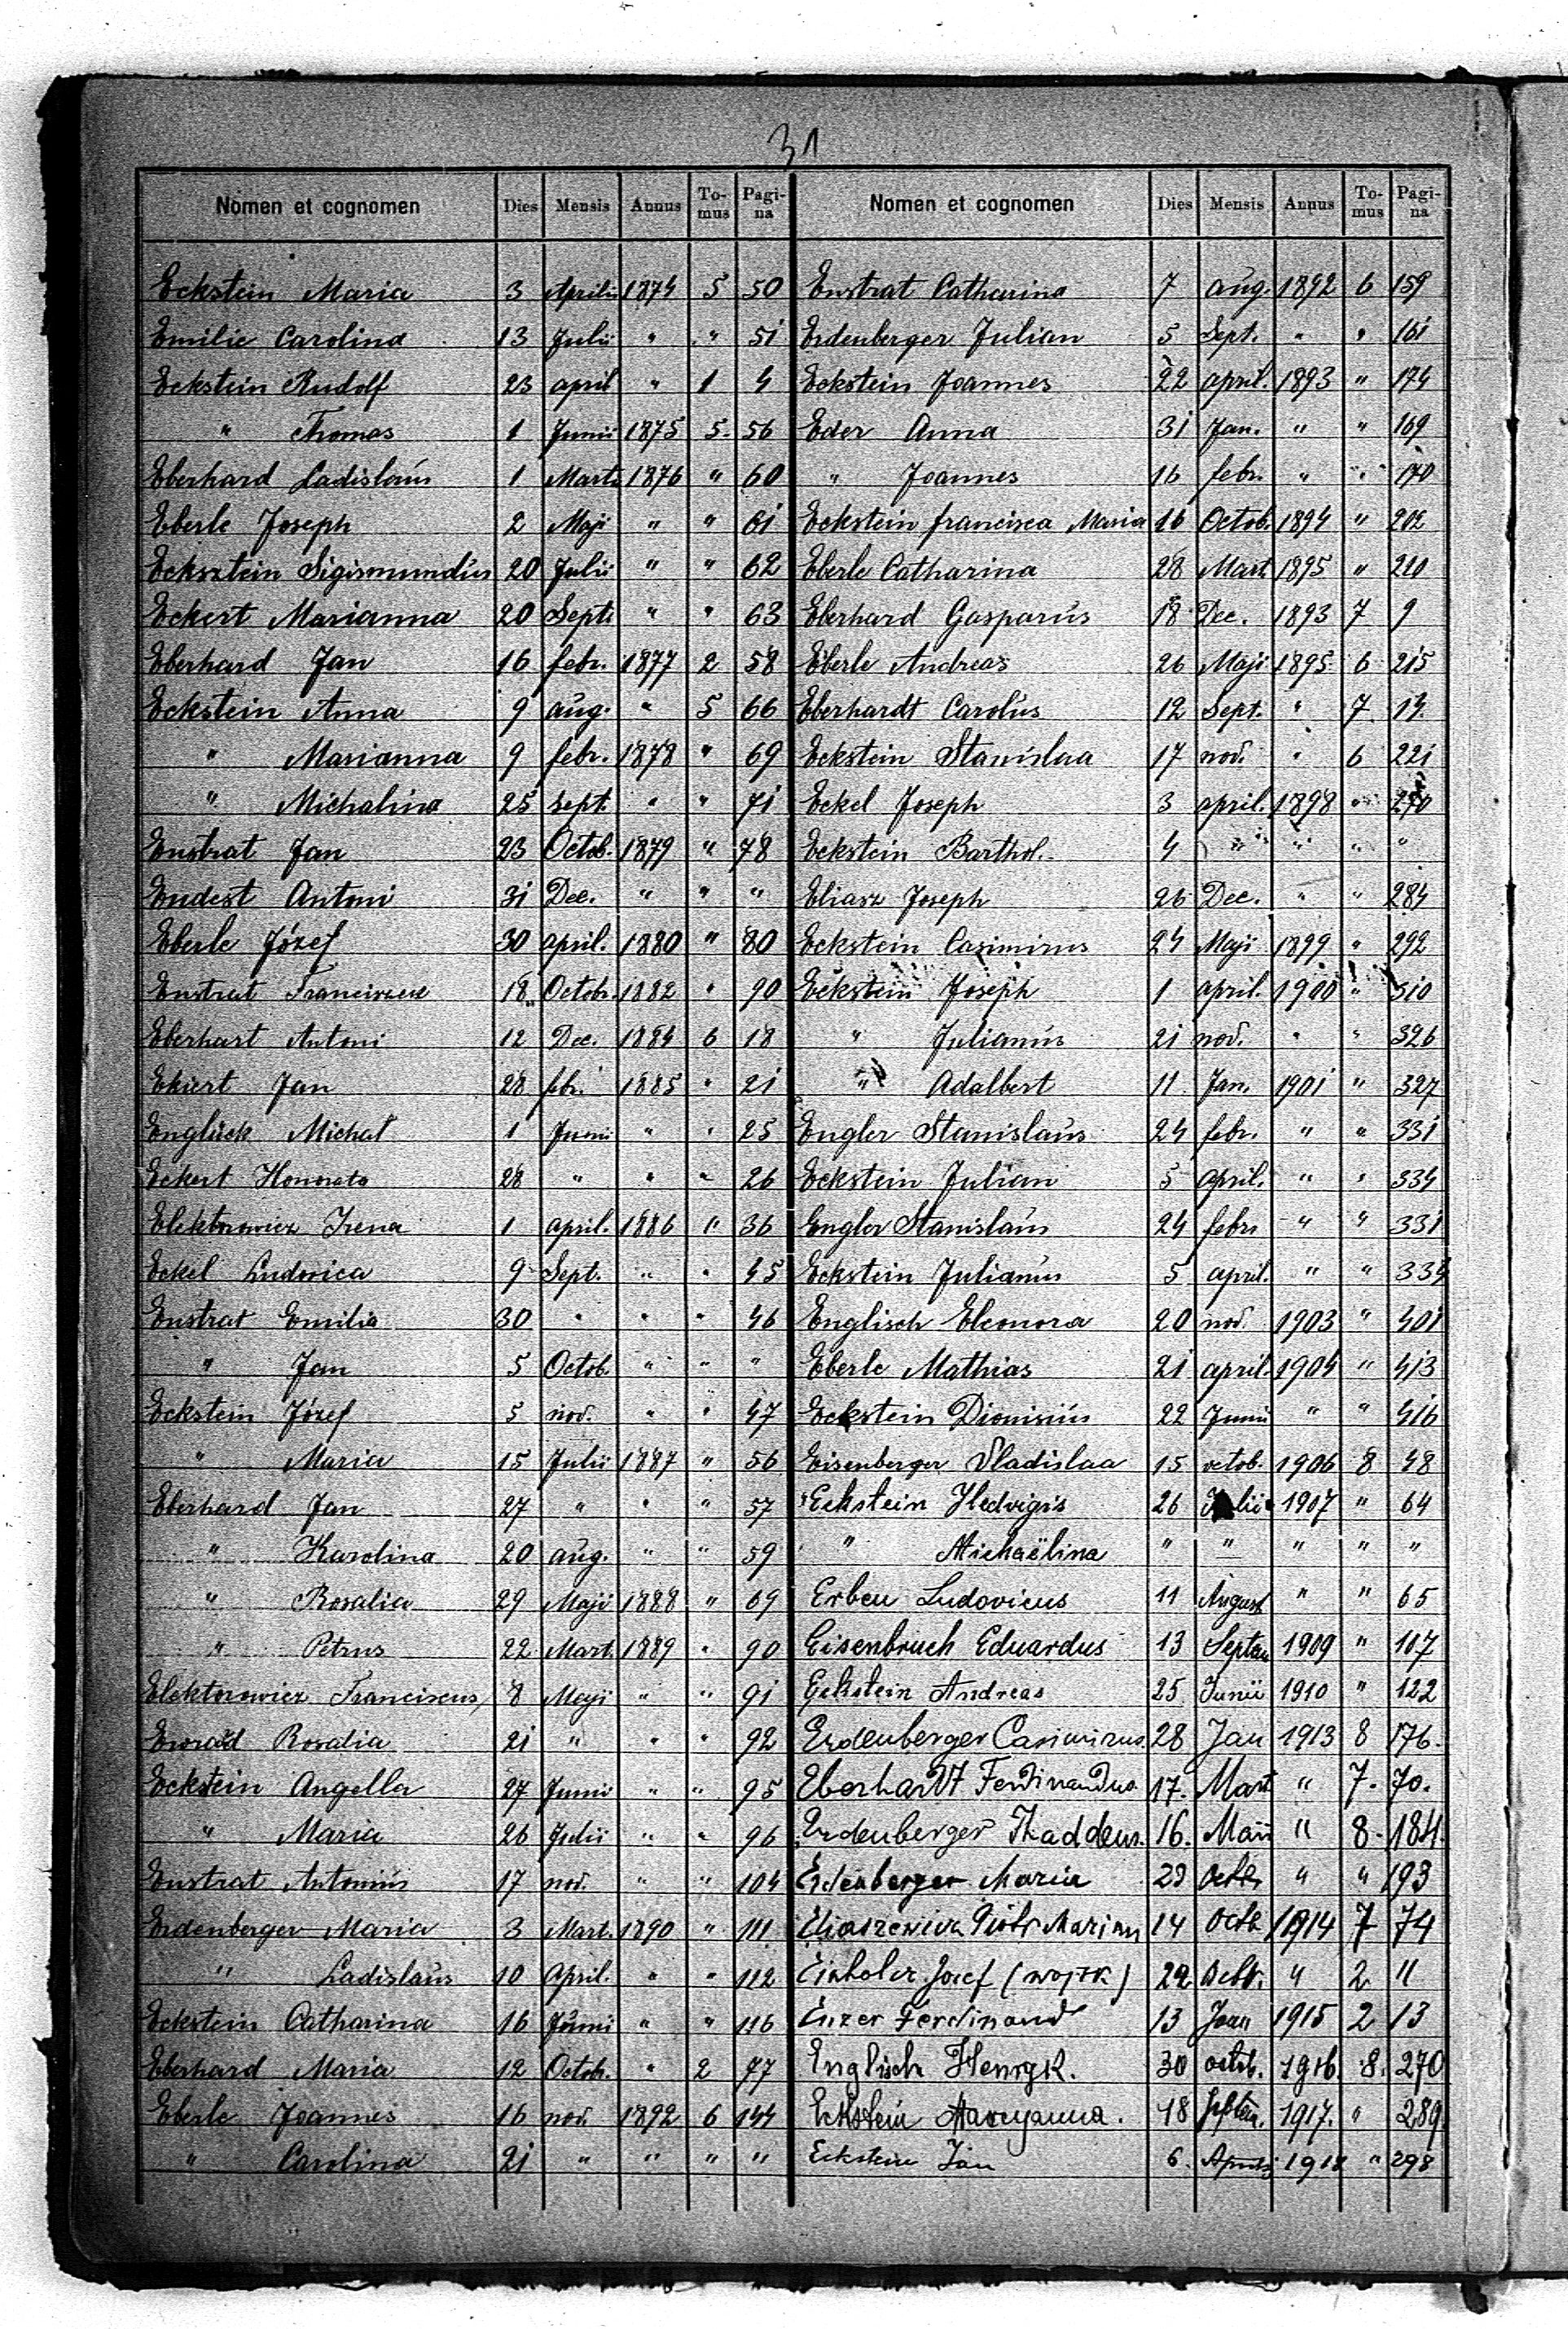 31
Nomen et cognomen Dies Mensis Annus To-mus Pagi-na
Eckstein Maria 3 Aprilis 1874 5 50
Emilie Carolina 13 Julii " " 51
Eckstein Rudolf 23 april " 1 4
" Thomas 1 Junii 1875 5 56
Eberhard Ladislaus 1 Marti 1876 " 60
Eberle Joseph 2 Maji " " 61
Ecksztein Sigismundus 20 Julii " " 62
Eckert Marianna 20 Septi " " 63
Eberhard Jan 16 febr. 1877 2 58
Eckstein Anna 9 aug. " 5 66
" Marianna 9 febr. 1878 " 69
" Michalina 25 sept. " " 71
Enstrat Jan 23 Octob. 1879 " 78
Endest Antoni 31 Dec. " " "
Eberle Józef 30 april. 1880 " 80
Enstrat Franciszek 18 Octobr. 1882 " 90
Eberhart Antoni 12 Dec. 1884 6 18
Ekiert Jan 28 febr. 1885 " 21
Englück Michał 1 Junii " " 25
Eckert Honorata 28 " " " 26
Elektorowicz Irena 1 april. 1886 " 36
Eckel Ludovica 9 Sept. " " 45
Enstrat Emilia 30 " " " 46
" Jan 5 Octob. " " "
Eckstein Józef 5 nov. " " 47
" Maria 15 Julii 1887 " 56
Eberhard Jan 27 " " " 57
" Karolina 20 aug. " " 59
" Rosalia 29 Maji 1888 " 69
" Petrus 22 Mart. 1889 " 90
Elektorowicz Franciscus, 8 Maji " " 91
Rosalia 21 " " " 92
Eckstein Angella 27 Junii " " 95
" Maria 26 Julii " " 96
Enstrat Antonius 17 nov. " " 104
Erdenberger Maria 3 Mart. 1890 " 111
" Ladislaus 10 April. " " 112
Eckstein Catharina 16 Junii " " 116
Eberhard Maria 12 Octob. " 2 77
Eberle Joannes 16 nov. 1892 6 144
" Carolina 21 " " " "
Nomen et cognomen Dies Mensis Annus To-mus Pagi-na
Enstrat Catharina 7 aug. 1892 6 159
Erdenberger Julian 5 Sept. " " 161
Eckstein Joannes 22 april. 1893 " 174
Eder Anna 31 Jan. " " 169
" Joannes 16 febr. " " 170
Eckstein francisca Maria 16 Octob. 1894 " 202
Eberle Catharina 28 Mart. 1895 " 210
Eberhard Gasparus 18 Dec. 1893 7 9
Eberle Andreas 26 Maji 1895 6 215
Eberhardt Carolus 12 Sept. " 7 14.
Eckstein Stanislaa 17 nov. " 6 221
Eckel Joseph 3 april. 1898 " 270
Eckstein Barthol. 4 " " " "
Eliasz Joseph 26 Dec. " " 284
Eckstein Casimirus 24 Maji 1899 " 292
Eckstein Joseph 1 april. 1900 " 310
" Julianus 21 nov. " " 326
" Adalbert 11 Jan. 1901 " 327
Engler Stanislaus 24 febr. " " 331
Eckstein Julian 5 April. " " 334
Engler Stanislaus 24 febr. " " 331
Eckstein Julianus 5 april. " " 334
Englisch Eleonora 20 nov. 1903 " 401
Eberle Mathias 21 april. 1904 " 413
Eckstein Dionisius 22 Junii " " 416
Eisenberger Vladislaa 15 octob. 1906 8 48
Eckstein Hedvigis 26 Julii 1907 " 64
" Michaëlina " " " " "
Erben Ludovicus 11 August " " 65
Eisenbruch Eduardus 13 1909 " 107
Eckstein Andreas 25 Junii 1910 " 122
Erdenberger Casimirus 28 Jan 1913 8 176.
Eberhardt Ferdinandus 17. Mart " 7. 70.
Erdenberger Thaddeus. 16. Maii " 8. 184.
Erdenberger Maria 23 Octb " " 193
Piotr Marian 14 Octb 1914 7 74
Józef (wojsk) 22 Octb. " 2 11
Enzer Ferdinand 13 Jan 1915 2 13
Englisch Henryk. 30 octob. 1916 8. 270
Eckstein Maryanna. 18 1917. " 289.
Eckstein Jan 6. 1918 " 298